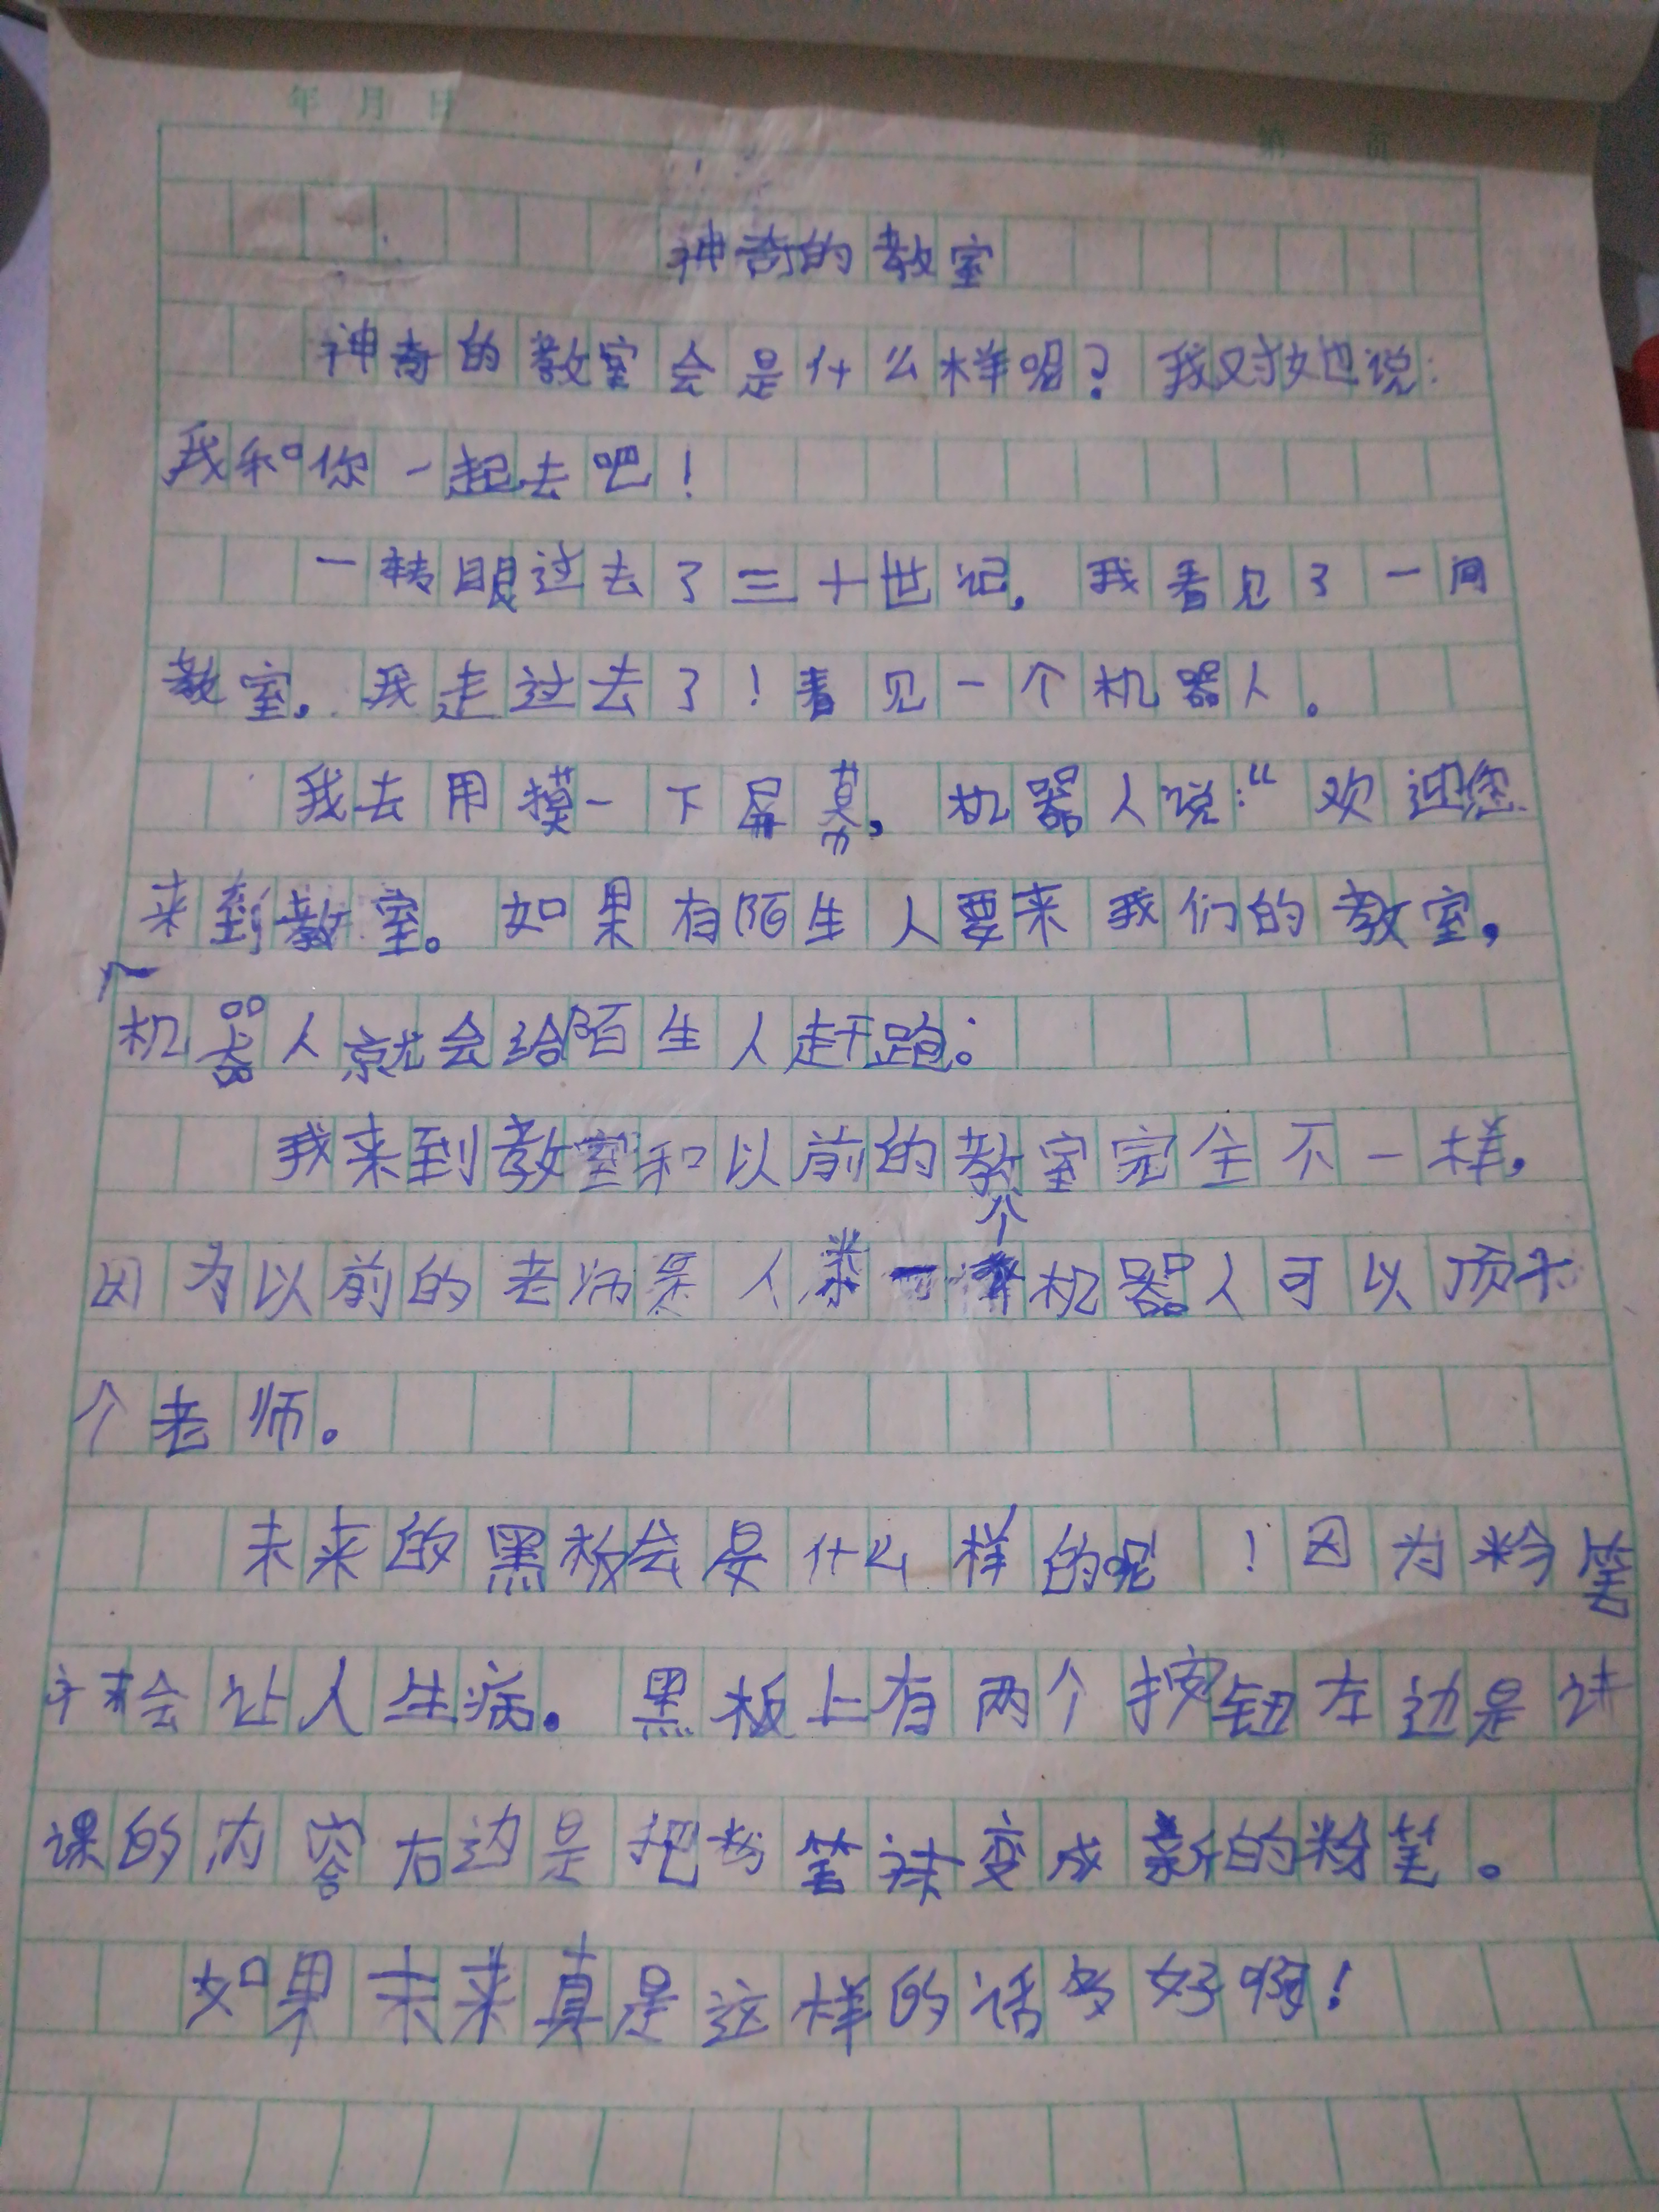 年 月 日
第 页
神奇的教室
神奇的教室会是什么样呢？我对她说：
我和你一起去吧！
一转眼过去了三十世记，我看见了一间
教室，我走过去了！看见一个机器人。
我去用摸一下屏幕，机器人说：“欢迎您
来到教室。如果有陌生人要来我们的教室，
机器人就会给陌生人赶跑。
我来到教室和以前的教室完全不一样，
因为以前的老师是人类一个机器人可以顶十
个老师。
未来的黑板会是什么样的呢！因为粉笔
会让人生病。黑板上有两个按钮左边是讲
课的内容右边是把粉笔变成新的粉笔。
如果未来真是这样的话多好啊！